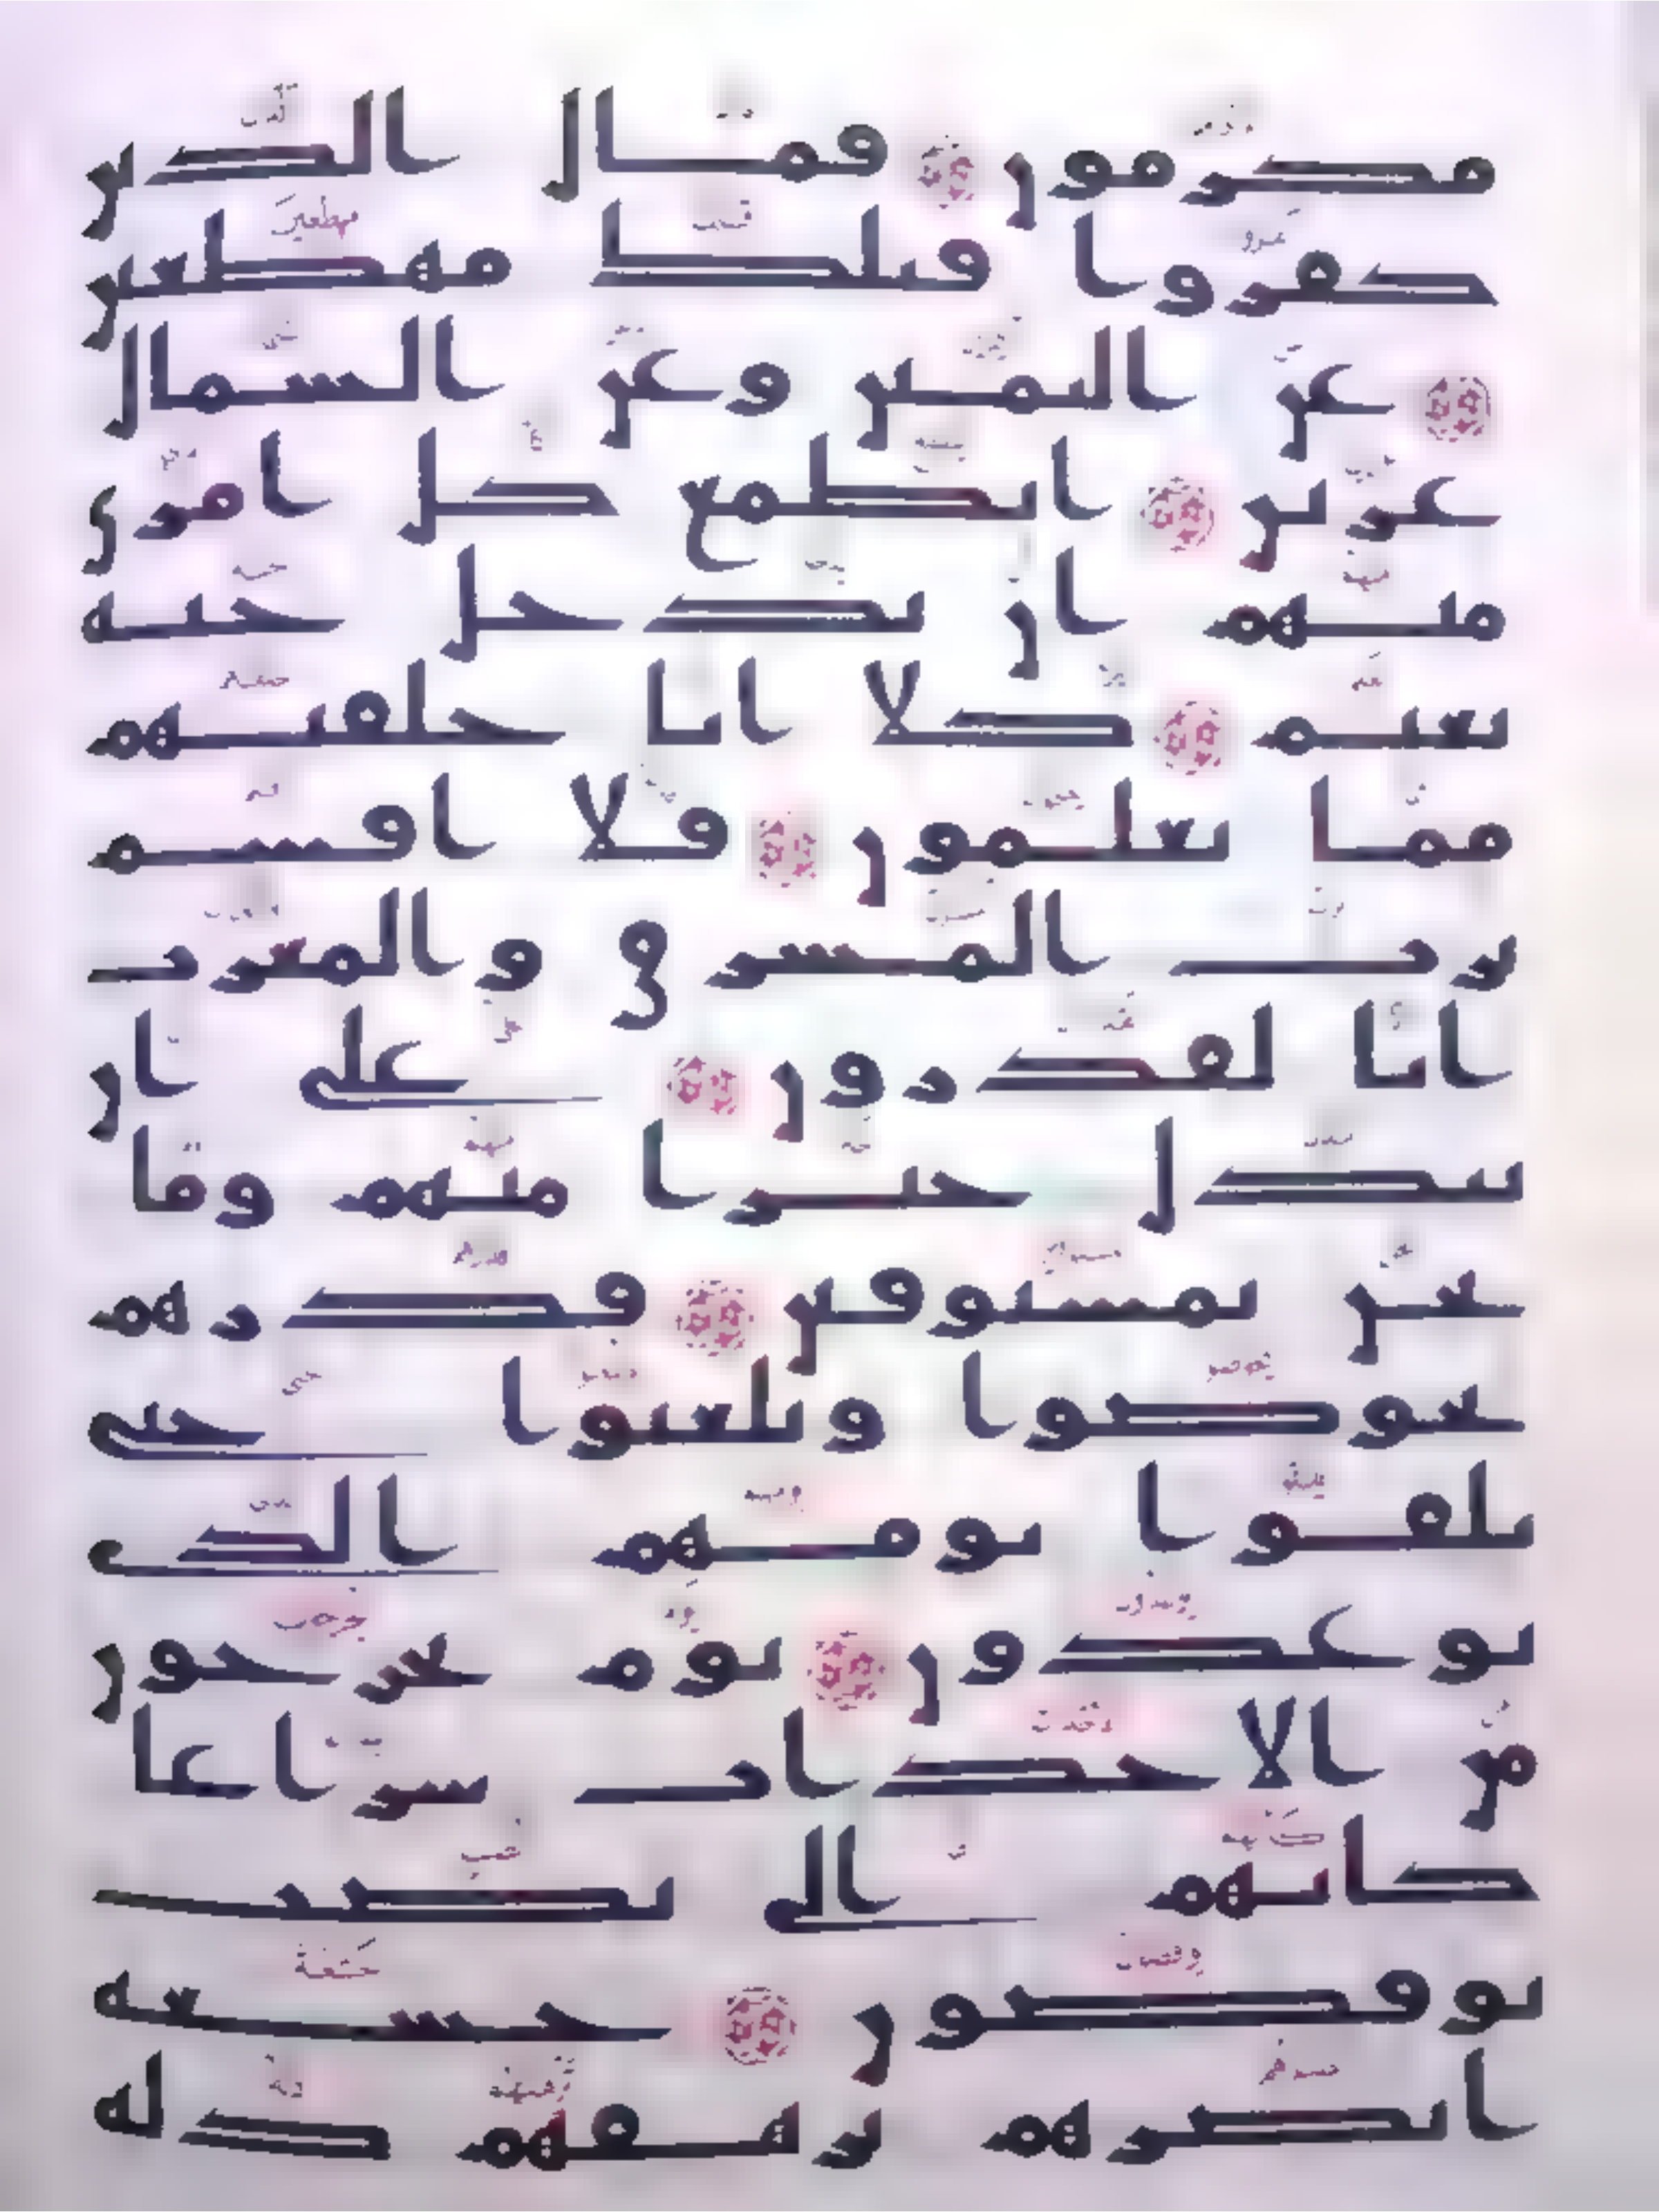 مكرمون فمال الذين
كفروا قبلك مهطعين
عن اليمين وعن الشمال
عزين ايطمع كل امرئ
منهم ان يدخل جنة
نعيم كلا انا خلقنهم
مما يعلمون فلا اقسم
برب المشرق والمغرب
انا لقدرون على ان
نبدل خيرا منهم وما
نحن بمسبوقين فذرهم
يخوضوا ويلعبوا حتى
يلقوا يومهم الذي
يوعدون يوم يخرجون
من الاجداث سراعا
كانهم الى نصب
يوفضون خشعة
ابصرهم ترهقهم ذلة